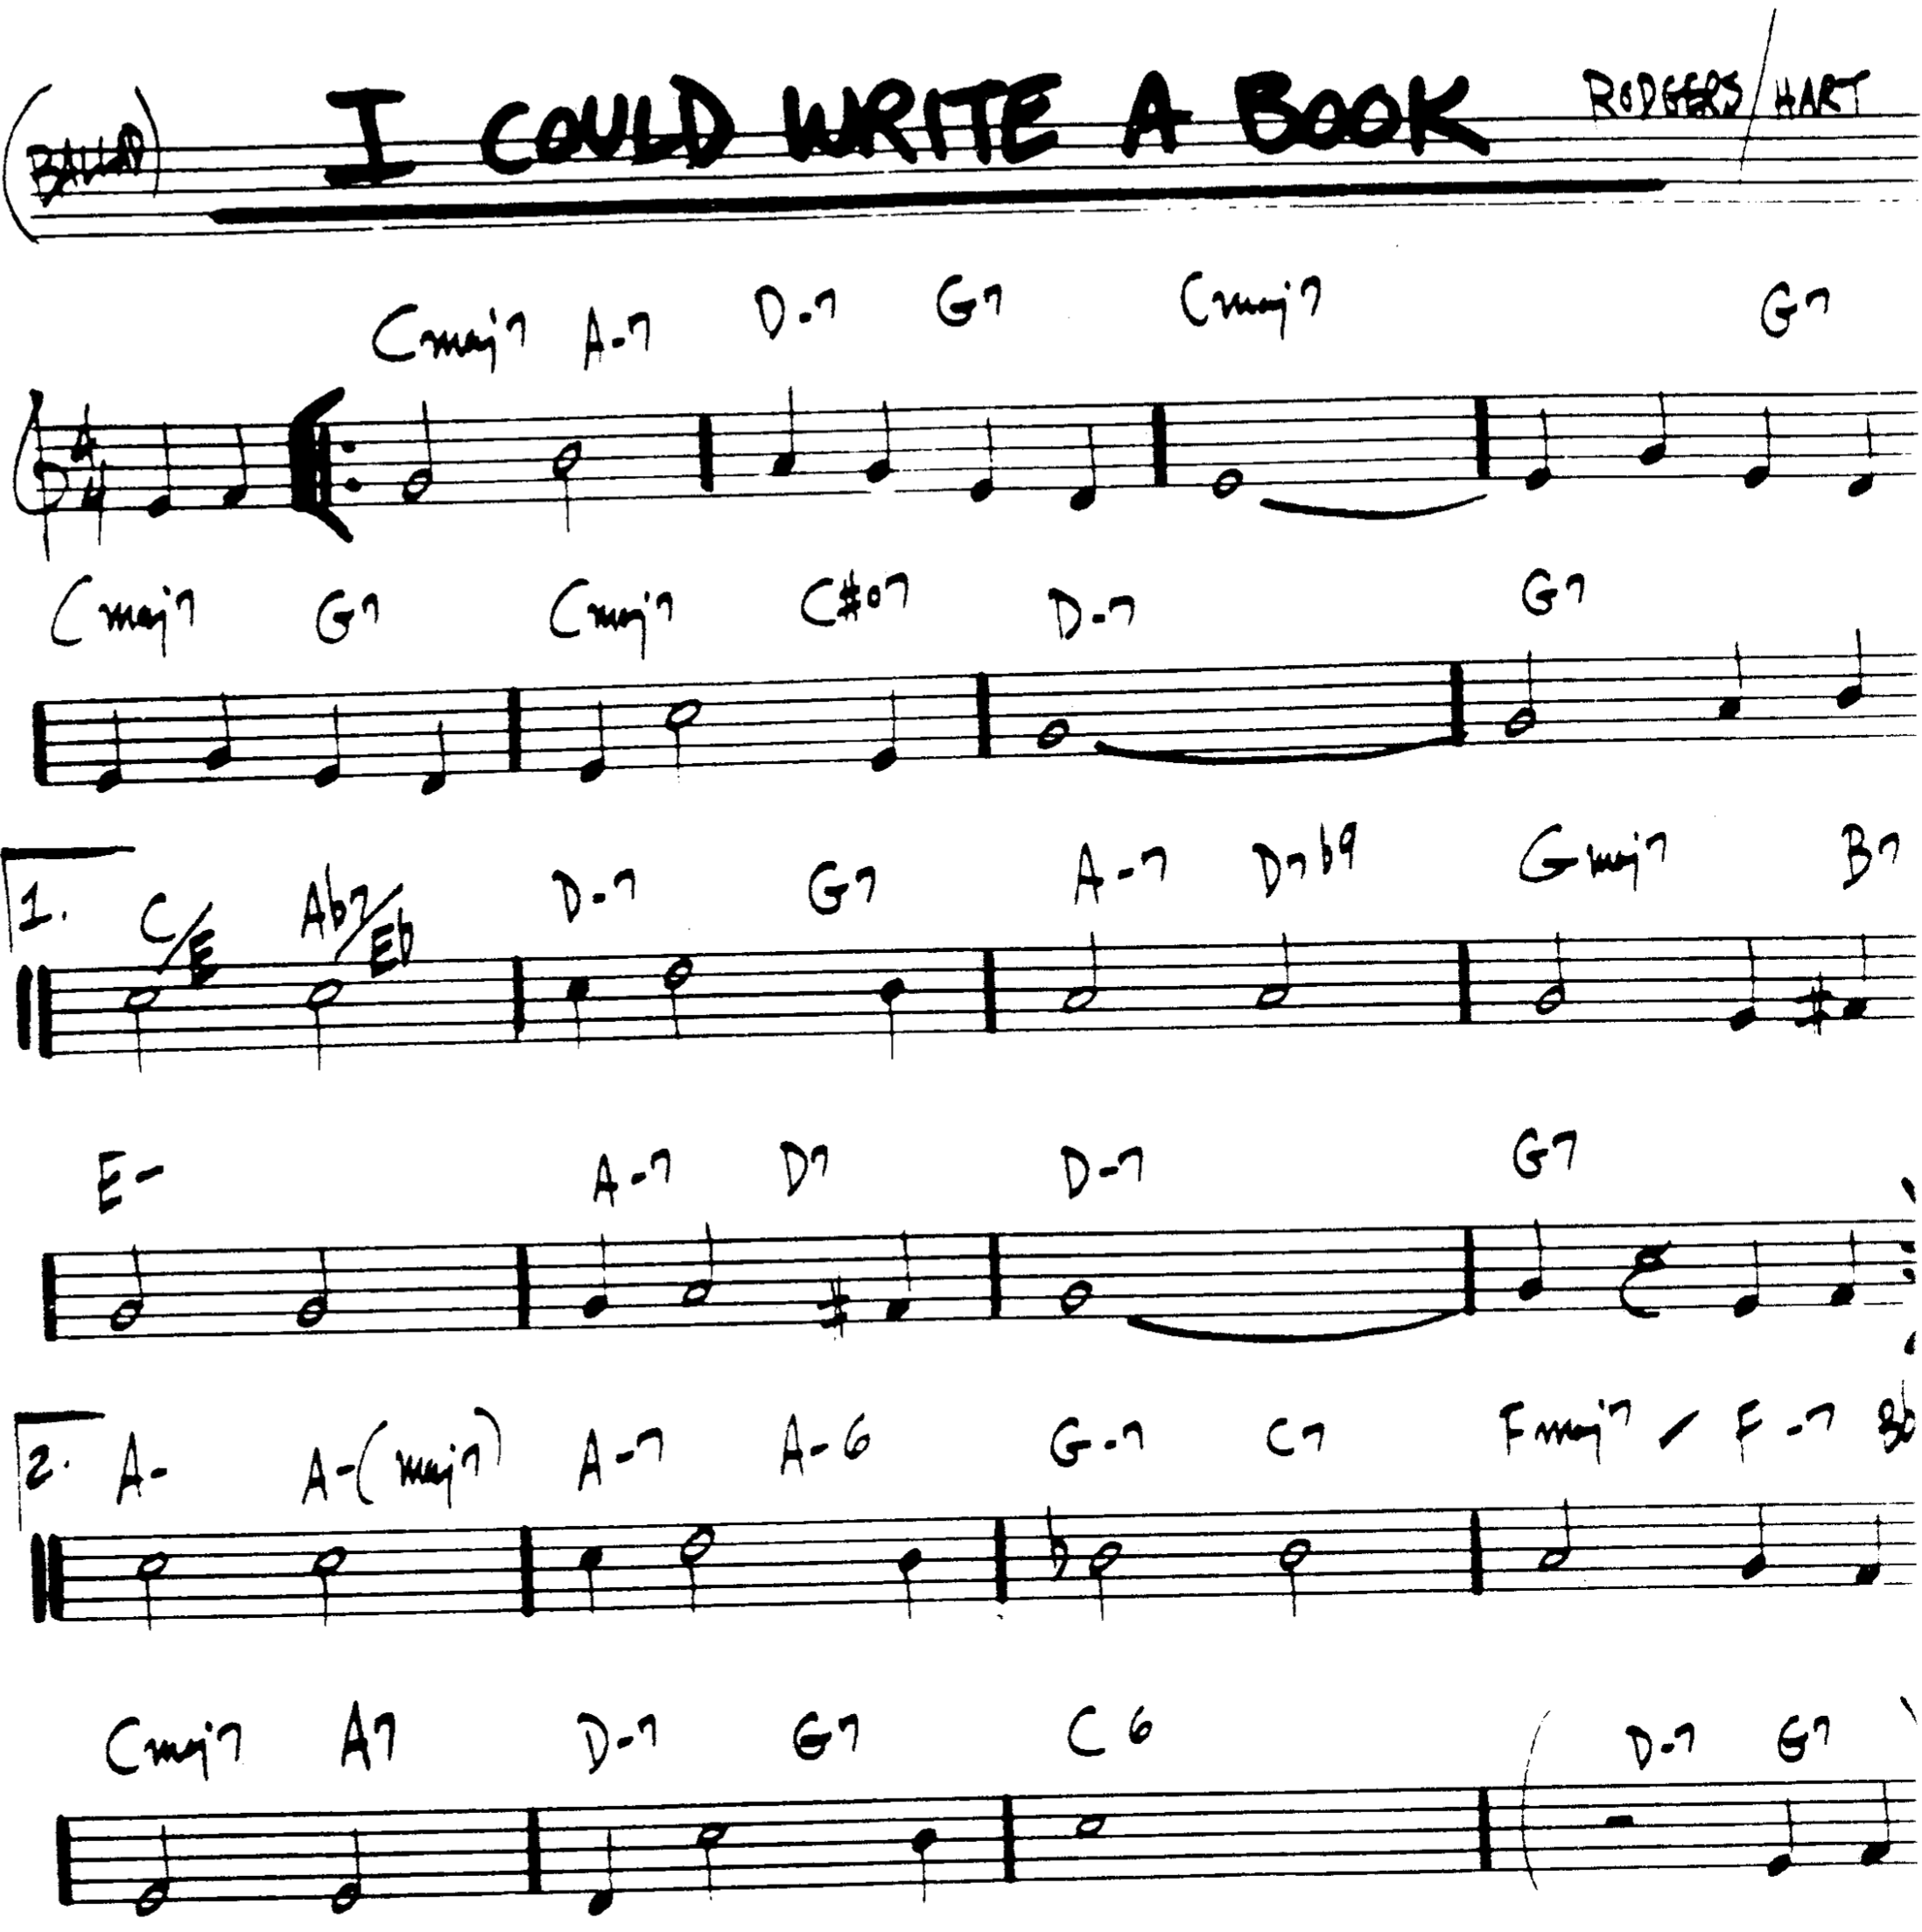 (BALLAD) I COULD WRITE A BOOK RODGERS/HART
Cmaj7 A-7 D-7 G7 Cmaj7 G7
4 4
Cmaj7 G7 Cmaj7 C#o7 D-7 G7
1. C/E Ab7/Eb D-7 G7 A-7 D7b9 Gmaj7 B7
E- A-7 D7 D-7 G7
2. A- A-(maj7) A-7 A-6 G-7 C7 Fmaj7 / F-7 Bb
Cmaj7 A7 D-7 G7 C6 (D-7 G7)